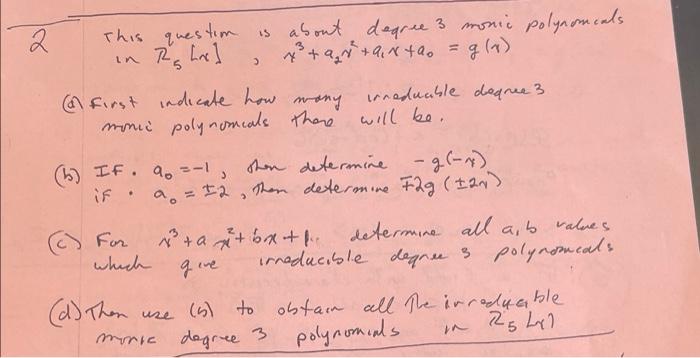 2 This question is about degree 3 monic polynomials
in Z₅[x], x³+a₂x²+a₁x+a₀ = g(x)
(a) First indicate how many irreducible degree 3
monic polynomials there will be.
(b) IF. a₀ = -1, then determine -g(-x)
if . a₀ = ±2, then determine ∓2g(±2x)
(c) For x³+ax²+bx+1. determine all a,b values
which give irreducible degree 3 polynomials
(d) Then use (b) to obtain all the irreducible
monic degree 3 polynomials in Z₅[x]